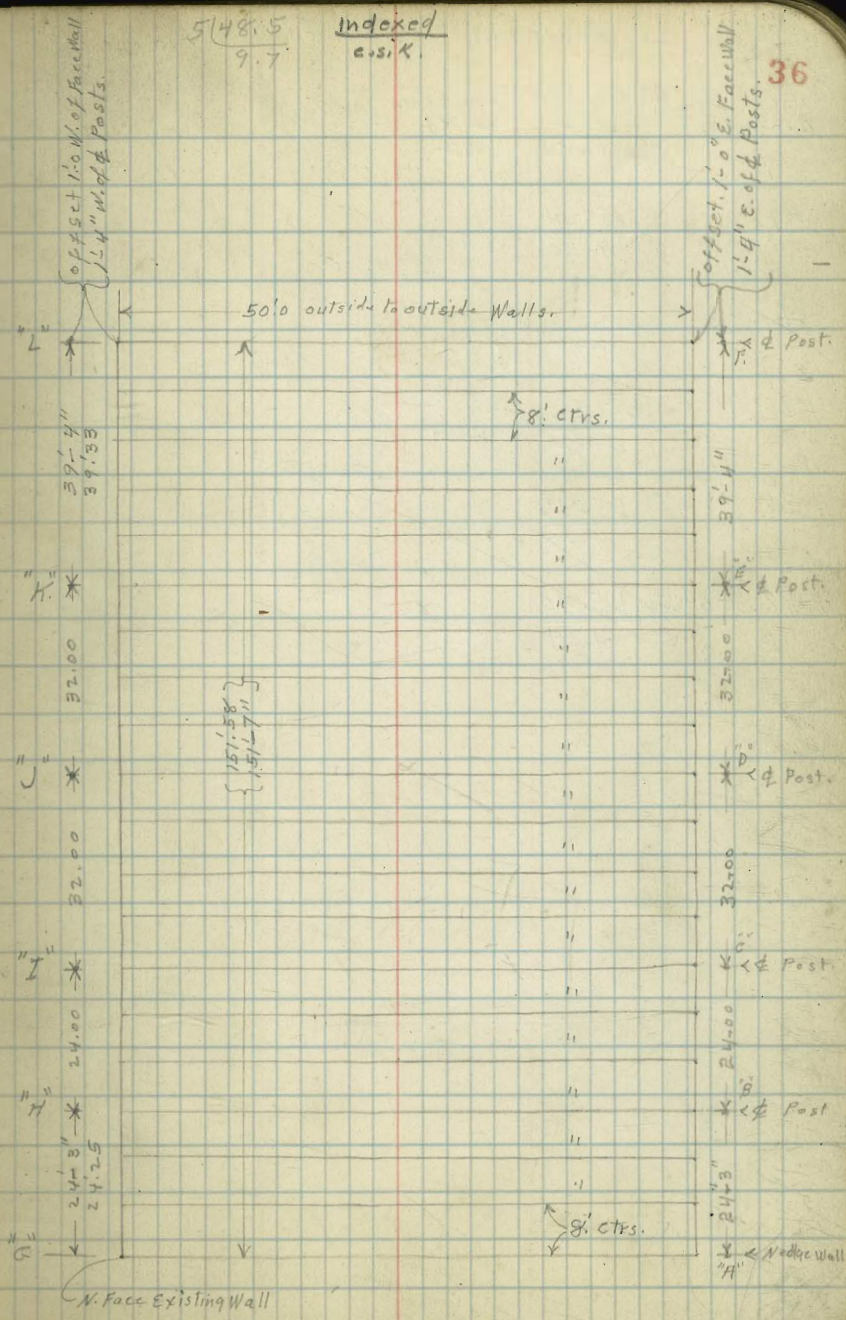 5 48.5
9.7
Indexed
c.s.K.
36
offset 1'-0 W. of Face Wall
1'-4" W. of ℄ Posts.
offset, 1'-0" E. Face Wall
1'-4" E. of ℄ Posts.
50'0 outside to outside Walls.
"L"
F.
℄ Post.
8' Ctrs.
39'-4"
39.'33
39'-4"
"
"
"
"K"
"E"
℄ Post.
"
32.00
32.00
"
"
151'.58
151'-7"
"
"J"
"D"
℄ Post.
"
32.00
32.00
"
"
"
"I"
"C"
℄ Post.
"
24.00
24.00
"
"
"H"
"B"
℄ Post
"
24'-3"
24.25
24'-3"
"
8' Ctrs.
"G"
"A"
N edge Wall
N. Face Existing Wall